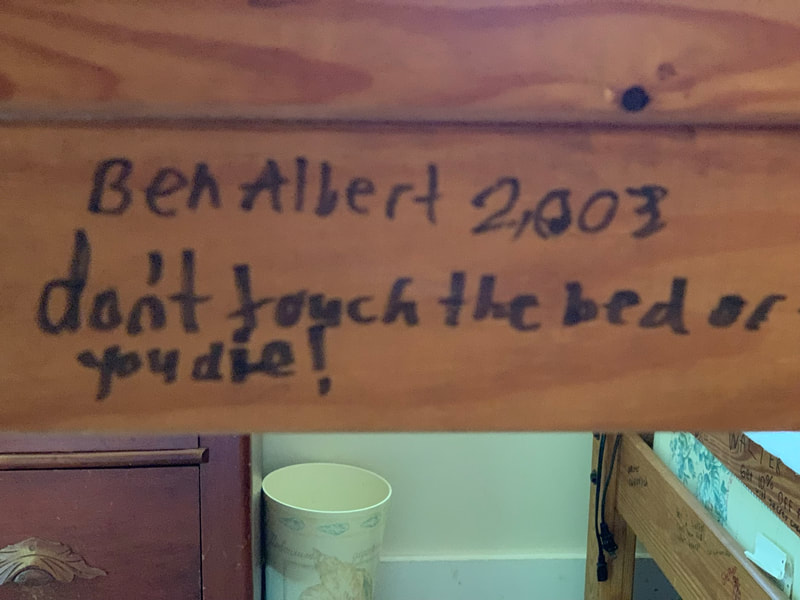 Ben Albert 2,003
don't touch the bed or
you die!
WALTER